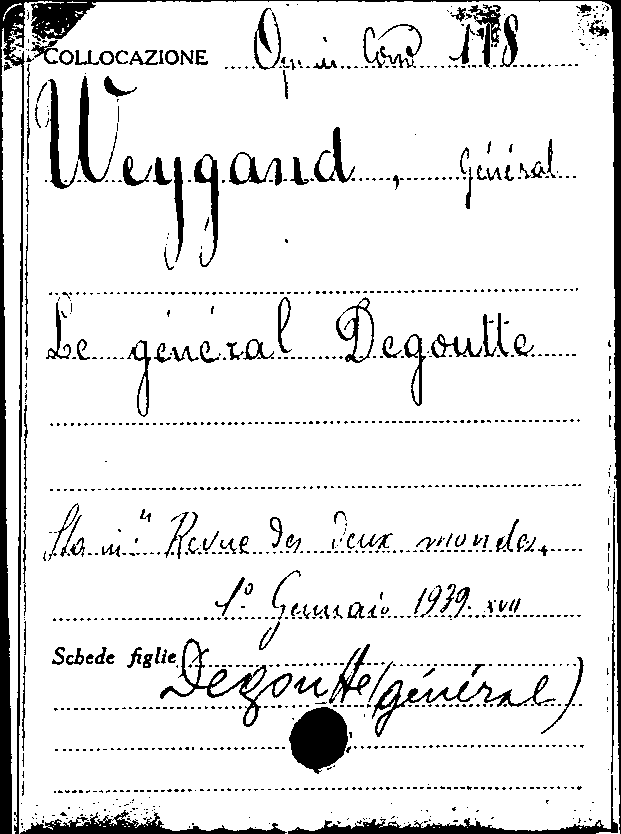 COLLOCAZIONE Op. in Cons 118
Weygand, Général
Le général Degoutte
Sta in: " Revue des deux mondes.
1º Gennaio 1939. XVII
Schede figlie
Degoutte (général)